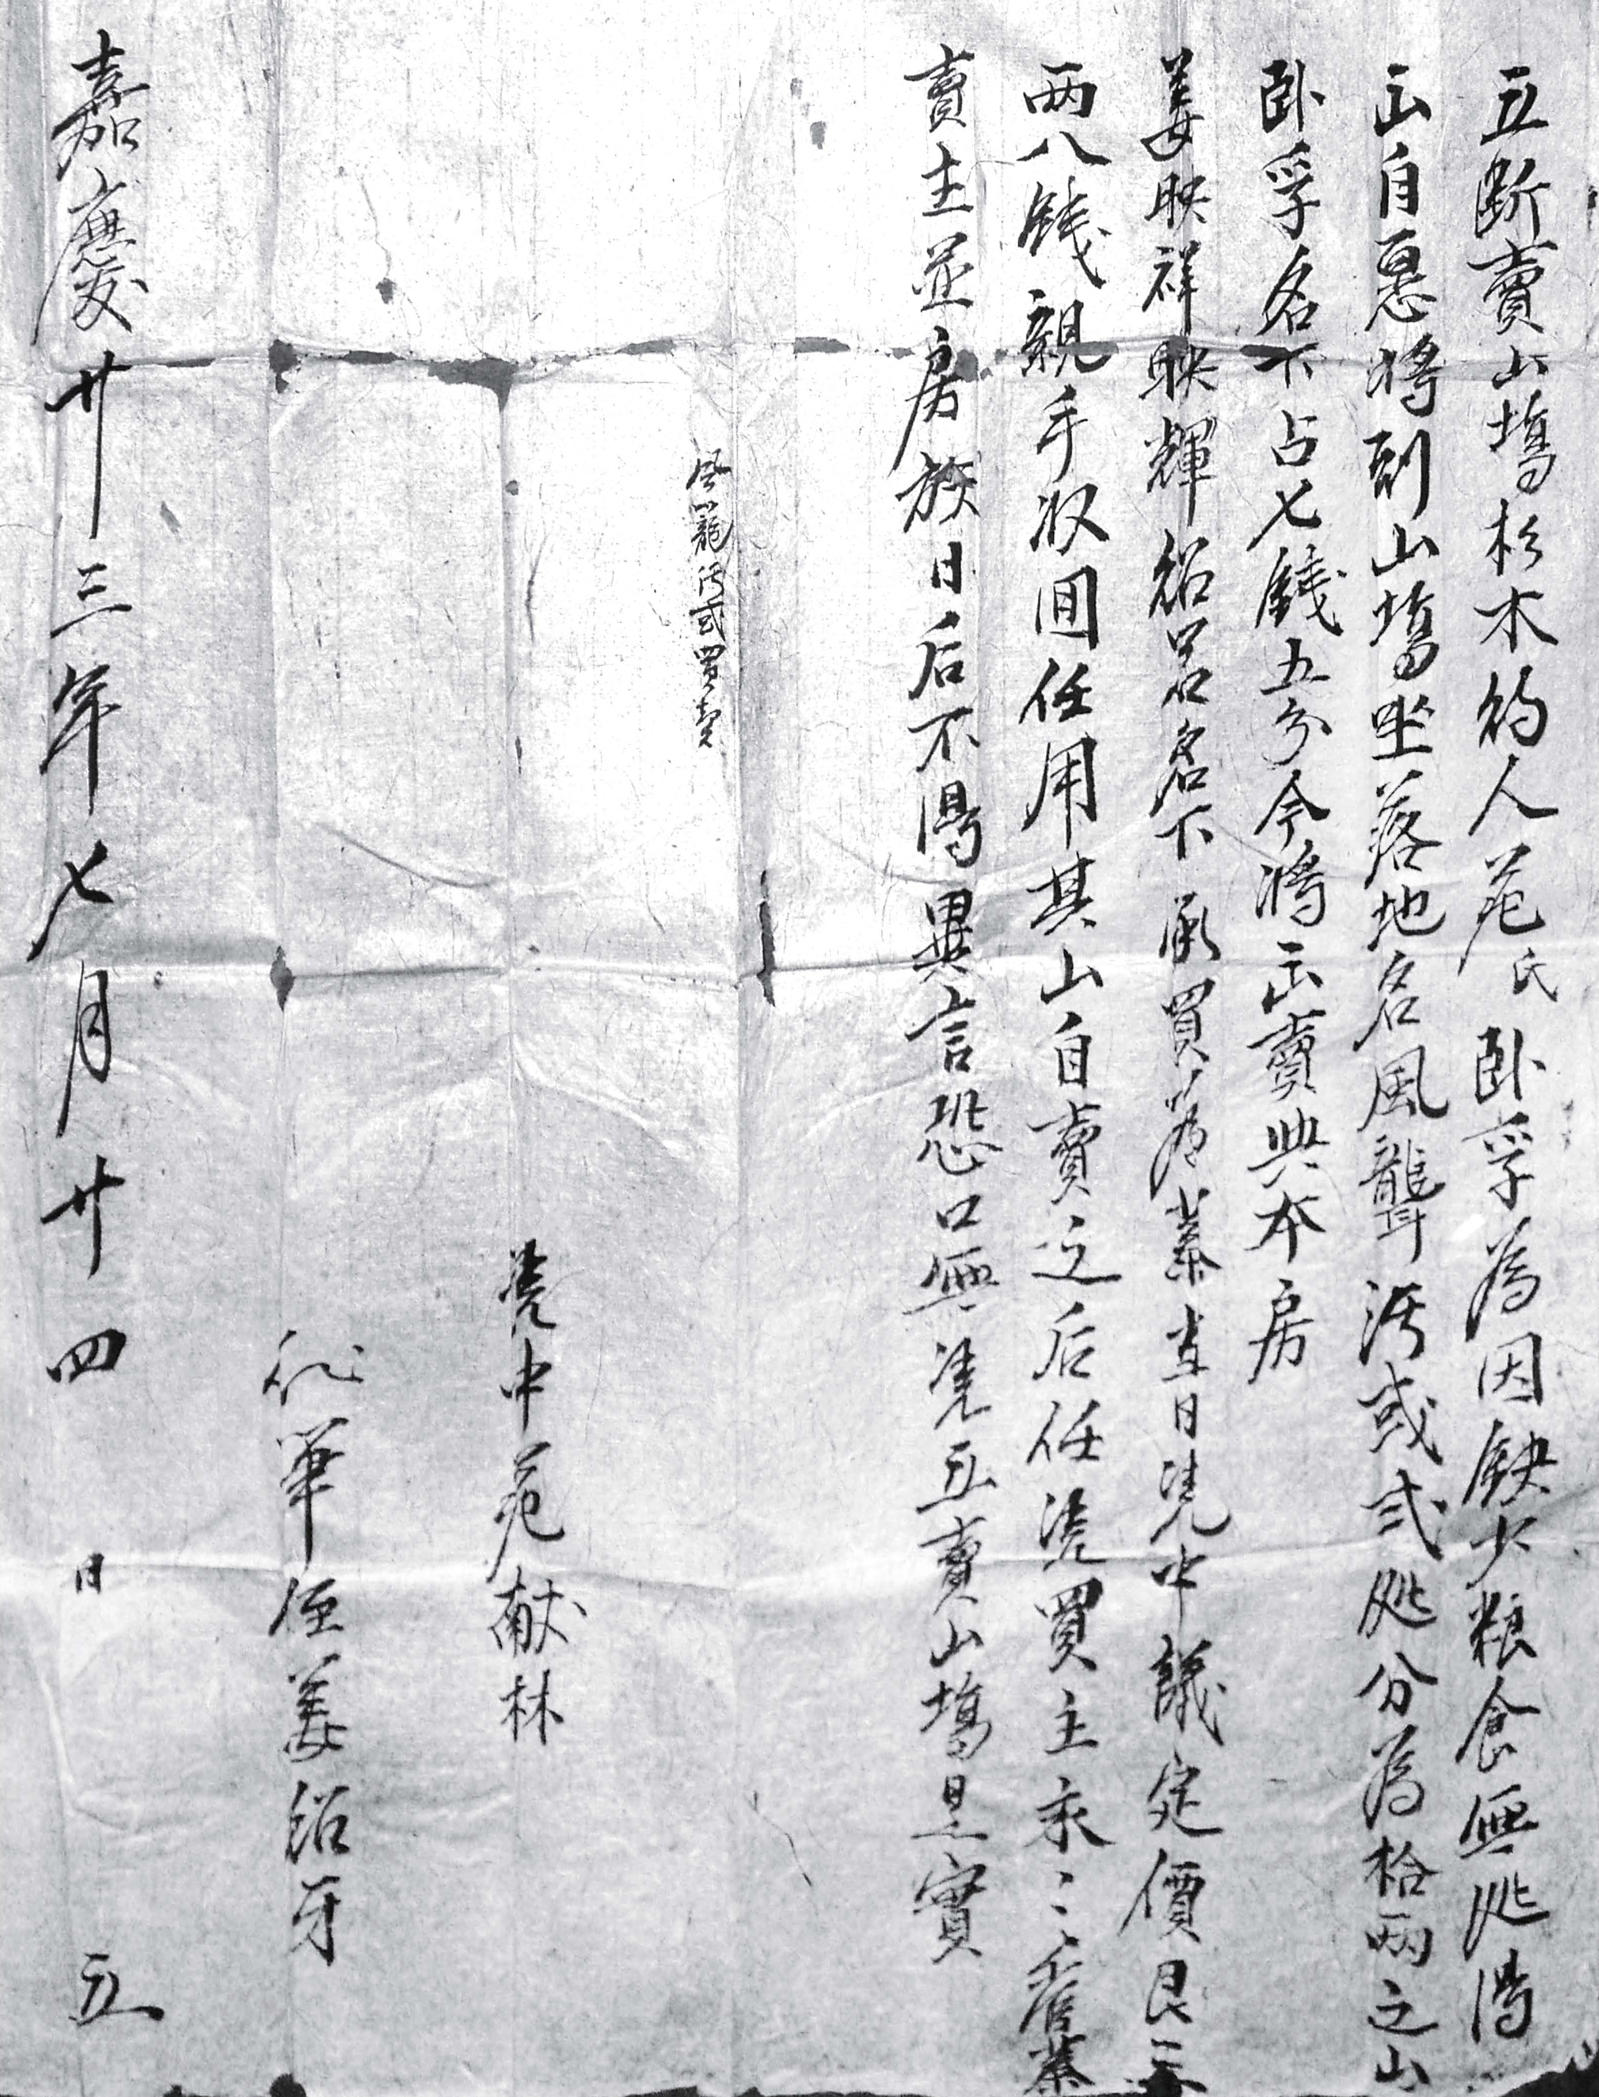 立断賣山塲杉木約人范氏卧孚為因缺少粮食無処淂
出自愿将到山塲坐落地名風聾污或弍処分為拾两之山
卧孚名下占七錢五分今將出賣與本房
姜映祥映輝紹吕名下承買為業当日凴中議定價艮三
两八錢親手収囬任用其山自賣之后任凴買主永遠管業
賣主並房族日后不淂異言恐口無凴立賣山塲是實
風龍污或買契
凴中范献林
代筆侄姜紹牙
嘉慶廿三年七月廿四日 立